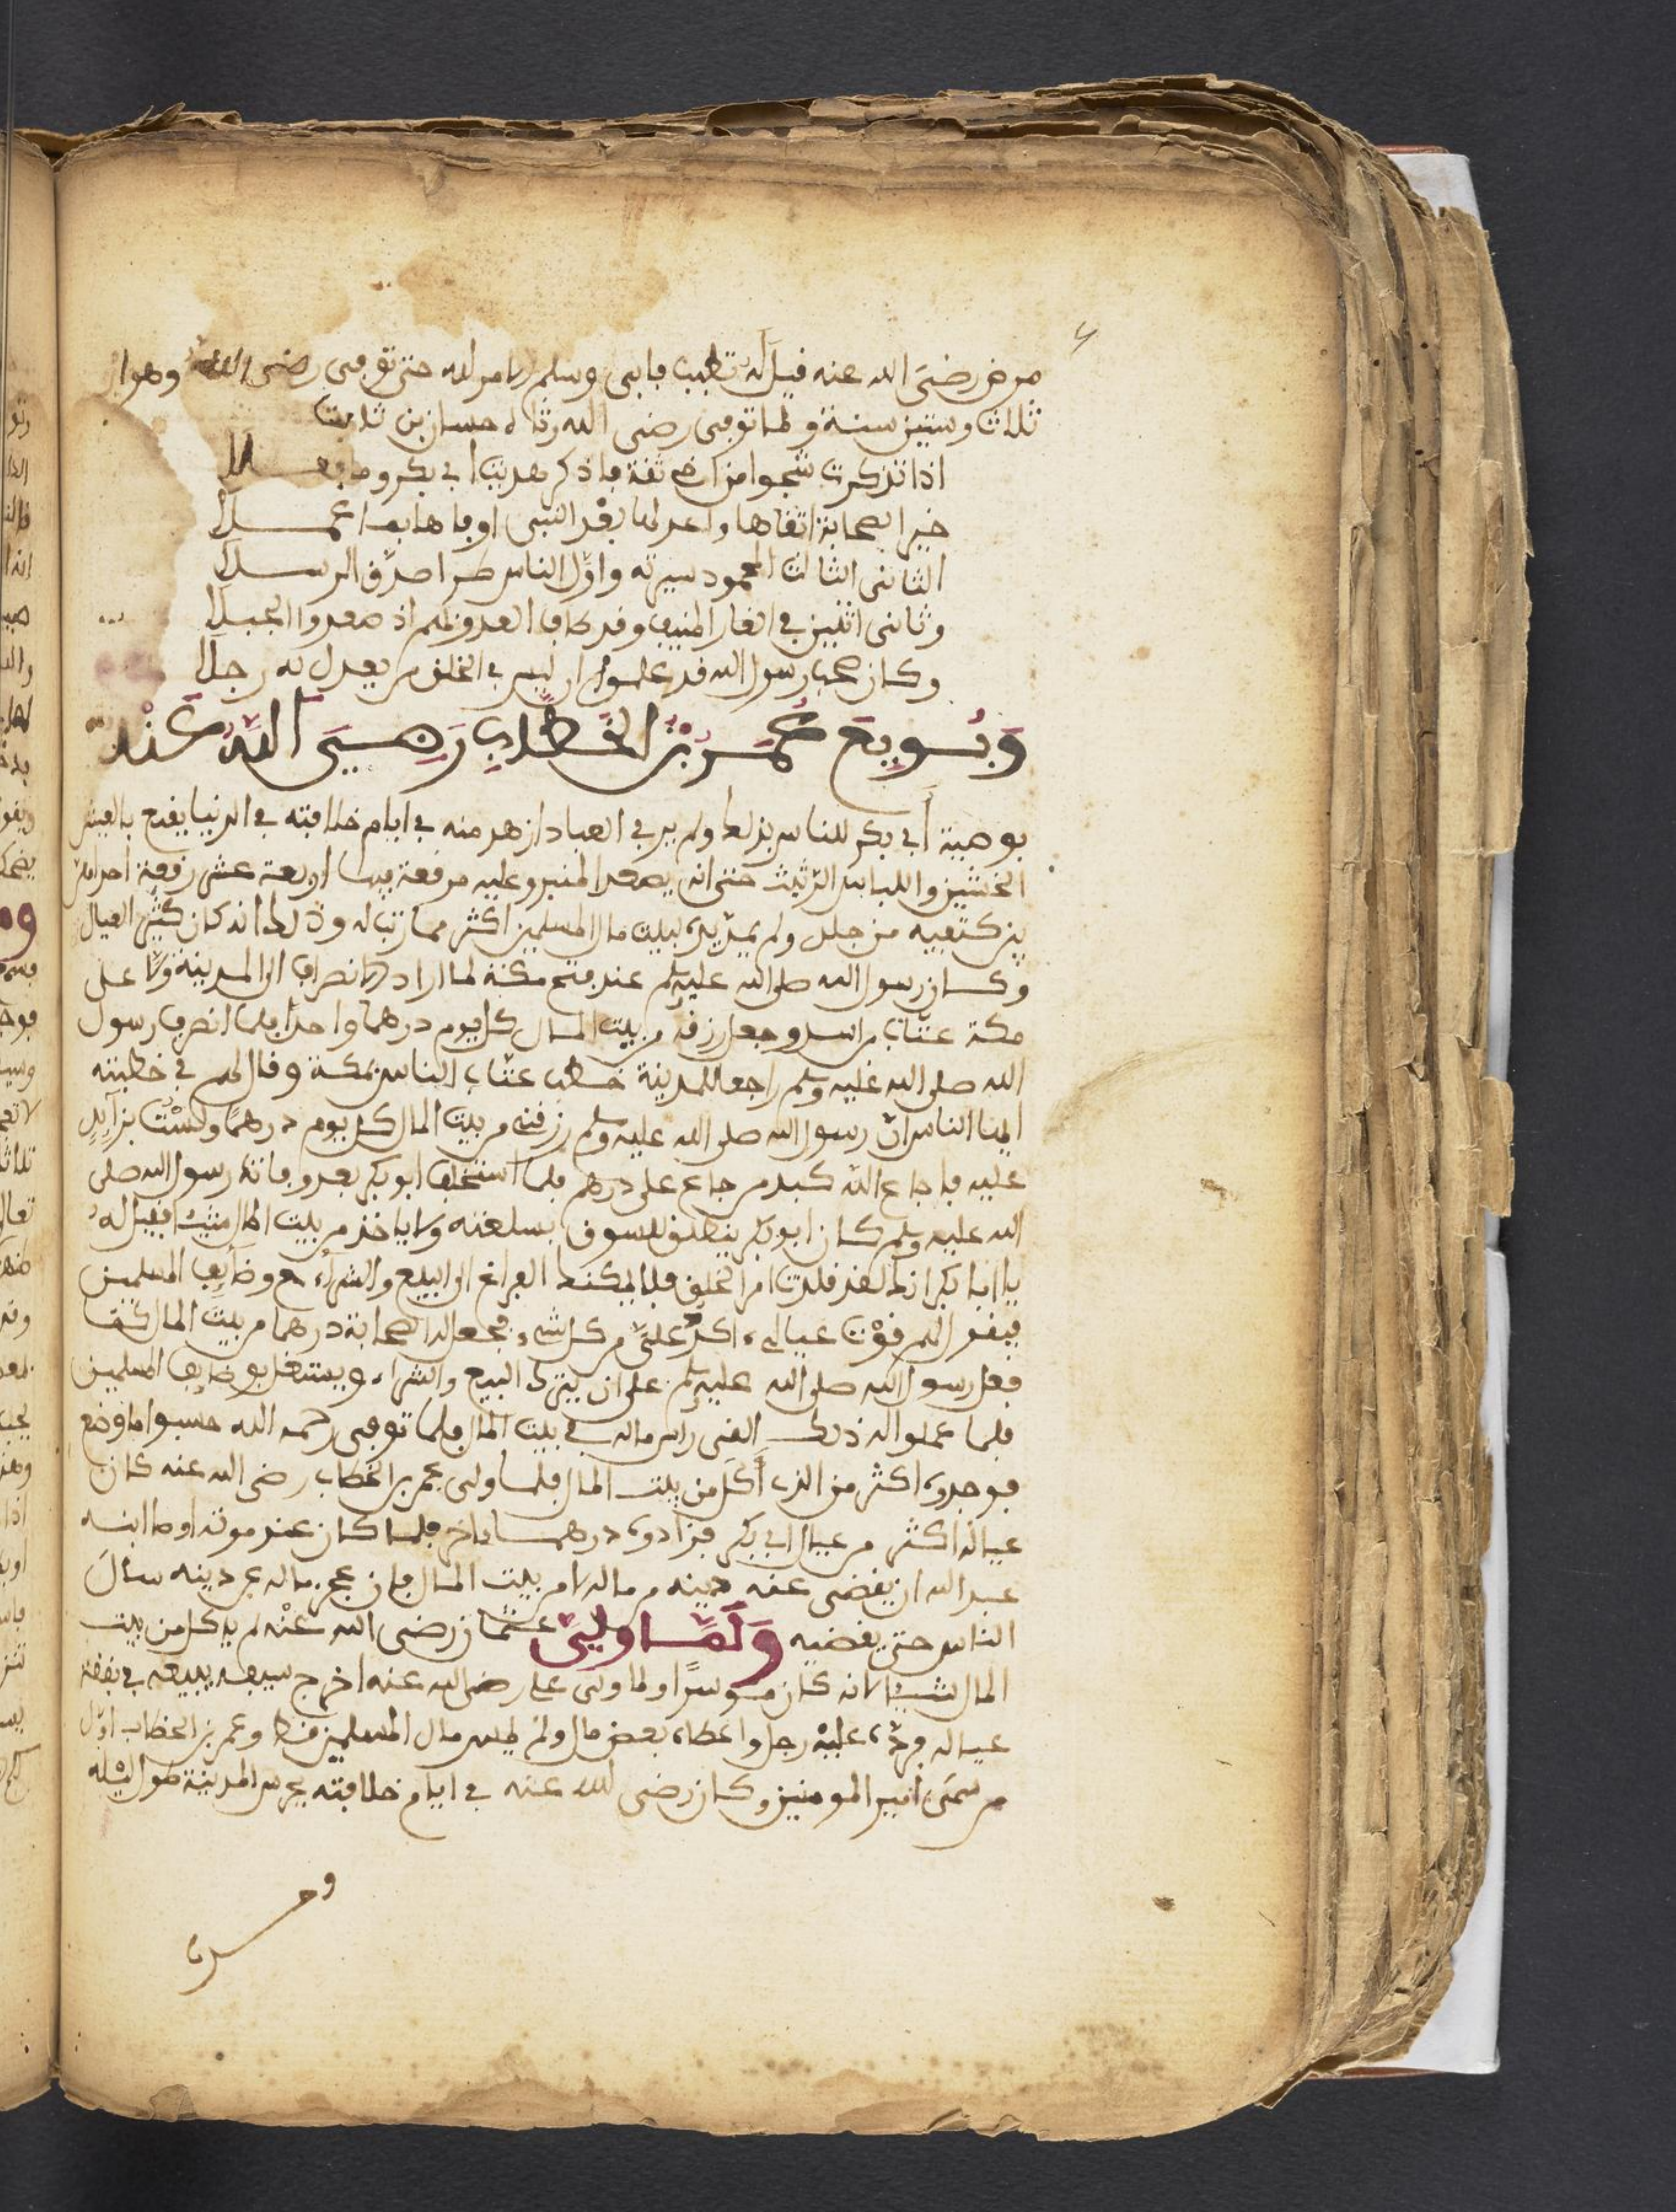 مرض رضي الله عنه فيل له تطبب فابى وسلم الامر لله حتى توفى رضي الله وهو ابن
ثلاث وستين سنة ولما توفى رضى الله رثاه حسان بن ثابت
اذا تذكرت شجوا من اخ ثقة فاذكر اخاك ابي بكر وما فعلا
خير الصحابة اتقاها واعدلها بعد النبي اوفاها بما حملا
الثاني الثالث المحمود سيرته واول الناس طرا صدق الرسلا
وثاني اثنين في الغار المنيف وفد طاف العدو بهم اذ صعدوا الجبلا
وكان حب رسول الله فد علموا ان ليس في الخلق من يعدل به رجلا
وَبُويِعَ عُمَرُ بْنُ الخَطَّابِ رَضِيَ اللَّهُ عَنْهُ
بوصية أبي بكر للناس بذلك ولم ير في العباد ازهد منه في ايام خلافته في الدنيا يفنع بالعيش
الخشين واللباس الرثيث حتى انه يصعد المنبر وعليه مرفعة فيها اربعة عشر رفعة احداهن
بين كتفيه من جلد ولم يمد يده لبيت مال المسلمين اكثر مما رتب له وذلك انه كان كثير العيال
وكان رسول الله صلى الله عليه وسلم عند فتح مكة لما اراد الانصراف الى المدينة ولا على
مكة عتاب بن اسد وجعل رزقه من بيت المال كل يوم درهما واحدا فلما انصرف رسول
الله صلى الله عليه وسلم راجعا للمدينة خطب عتاب الناس بمكة وفال لهم في خطبته
ايها الناس ان رسول الله صلى الله عليه وسلم رزفنى من بيت المال كل يوم درهما ولست بزآيد
عليه فاجاع الله كبد من جاع على درهم فلما استخلف ابو بكر بعد وفاة رسول الله صلى
الله عليه وسلم كان ابو بكر ينطلق للسوق بسلعته ولا ياخذ من بيت المال شيئا فقيل له
يا ابا بكر انك لفد فلدت امر الخلق فلا يمكنك الفراغ الى البيع والشراء مع وظايف المسلمين
فيفول لهم فوت عيالي اكد علي من كل شيء فجعل له الصحابة درهما من بيت المال كما
فعل رسول الله صلى الله عليه وسلم على ان يترك البيع والشراء ويشتغل بوظايف المسلمين
فلما عملوا له ذلك الفى راس ماله في بيت المال فلما توفى رحمه الله حسبوا ما وضع
فوجدوه اكثر من الذي أكل من بيت المال فلما ولى عمر بن الخطاب رضى الله عنه كان
عياله اكثر من عيال ابي بكر فزادوه درهما ءاخر فلما كان عند موته اوصا ابنه
عبد الله ان يفضى عنه دينه من ماله لا من بيت المال فان عجز ماله عن دينه سال
الناس حتى يفضيه وَلَمَّا وَلِيَ عثمان رضى الله عنه لم ياكل من بيت
المال شيئا لانه كان موسرا ولما ولى على رضى الله عنه اخرج سيفه يبيعه في نففة
عياله فرده عليه رجل واعطاه بعض مال ولم يلمس مال المسلمين فط وعمر بن الخطاب اول
من سمى امير المومنين وكان رضى الله عنه في ايام خلافته يحرس المدينة طول ليله